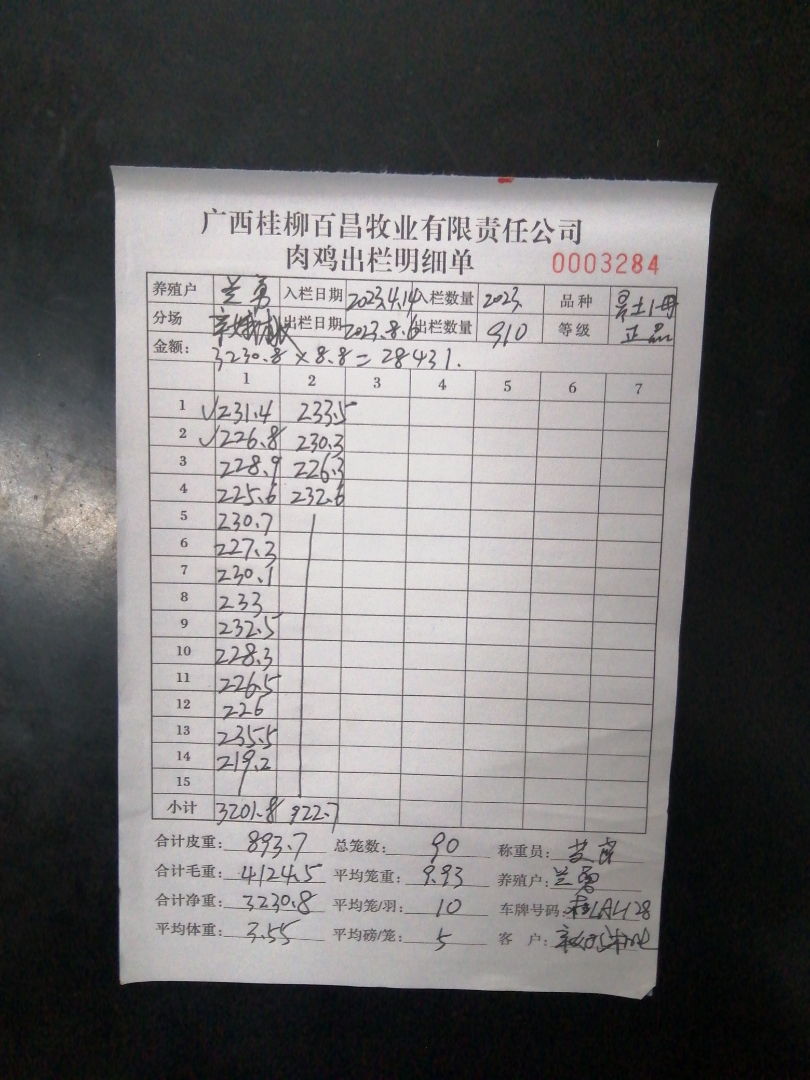 广西桂柳百昌牧业有限责任公司
肉鸡出栏明细单 0003284
养殖户 兰勇 入栏日期 2023.4.14 入栏数量 2023. 品种
分场 出栏日期 2023.8.6 出栏数量 910 等级 正品
金额: 3230.8 × 8.8 = 28431.
1 2 3 4 5 6 7
1 √231.4 233.5
2 √226.8 230.3
3 228.9 226.3
4 225.6 232.6
5 230.7
6 227.3
7 230.1
8 233
9 232.5
10 228.3
11 226.5
12 226
13 235.5
14 219.2
15
小计 3201.8 922.7
合计皮重: 893.7 总笼数: 90 称重员:
合计毛重: 4124.5 平均笼重: 9.93 养殖户: 兰勇
合计净重: 3230.8 平均笼/羽: 10 车牌号码:
平均体重: 3.55 平均磅/笼: 5 客户: